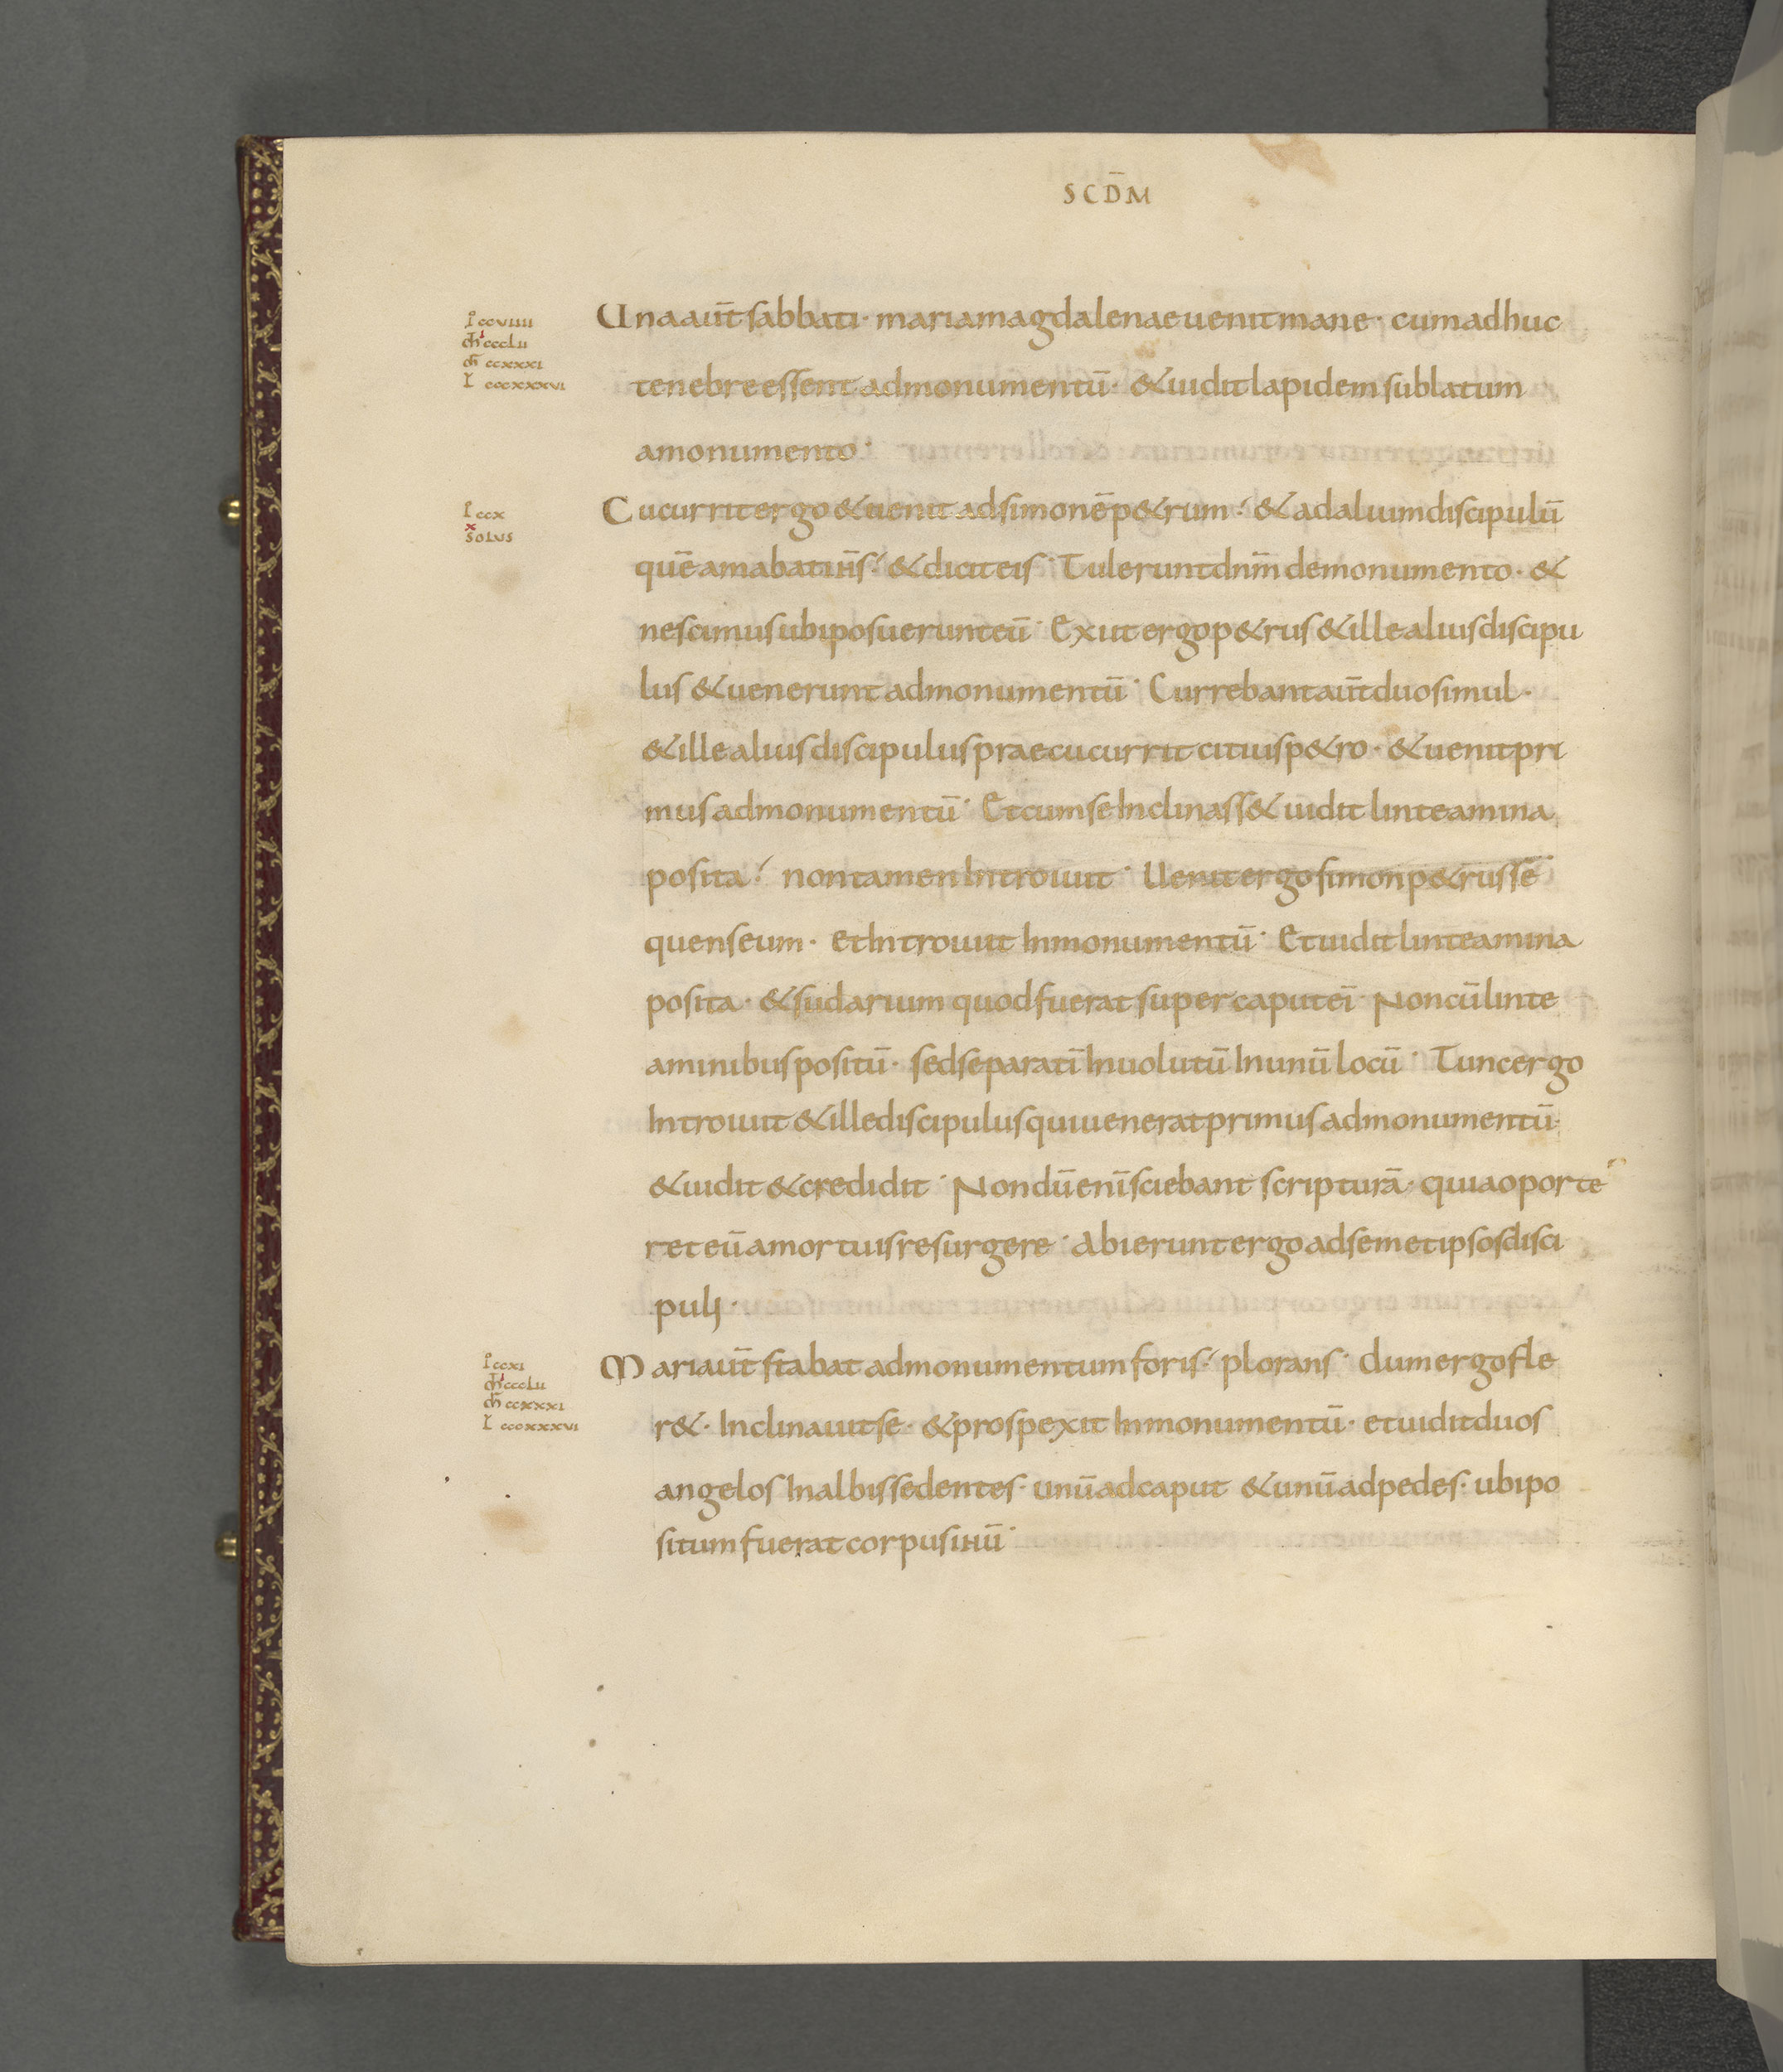 SCD̄M
I ccviiii
m̄ cccLii
m̄ ccxxxi
L cccxxxvi
Una aut̄ sabbati· maria magdalenae uenit mane· cum adhuc
tenebre essent ad monumentū· & uidit lapidem sublatum
a monumento·
I ccx
x
SOLUS
Cucurrit ergo & uenit ad simonē p&rum· & ad alium discipulū
quē amabat ih̄s· & dicit eis· Tulerunt dn̄m de monumento· &
nescimus ubi posuerunt eū· Exiit ergo p&rus & ille alius discipu
lus & uenerunt ad monumentū· Currebant aut̄ duo simul·
& ille alius discipulus praecucurrit citius p&ro· & uenit pri
mus ad monumentū· Et cum se Inclinass& uidit linteamina
posita· non tamen Introiuit· Uenit ergo simon p&rus se
quens eum· et Introiuit In monumentū· Et uidit linteamina
posita· & sudarium quod fuerat super caput eī· Non cū linte
aminibus positū· sed separatī Inuolutū In unū locū· Tunc ergo
Introiuit & ille discipulus qui uenerat primus ad monumentū·
& uidit & credidit· Nondū enī sciebant scripturā· quia oporte
ret eū a mortuis resurgere· Abierunt ergo ad semetipsos disci
puli·
I ccxi
m̄ cccLii
m̄ ccxxxi
L cccxxxvi
Maria aut̄ stabat ad monumentum foris· plorans· dum ergo fle
r&· Inclinauit se· & prospexit In monumentū· et uidit duos
angelos In albis sedentes· unū ad caput & unū ad pedes· ubi po
situm fuerat corpus ih̄u·